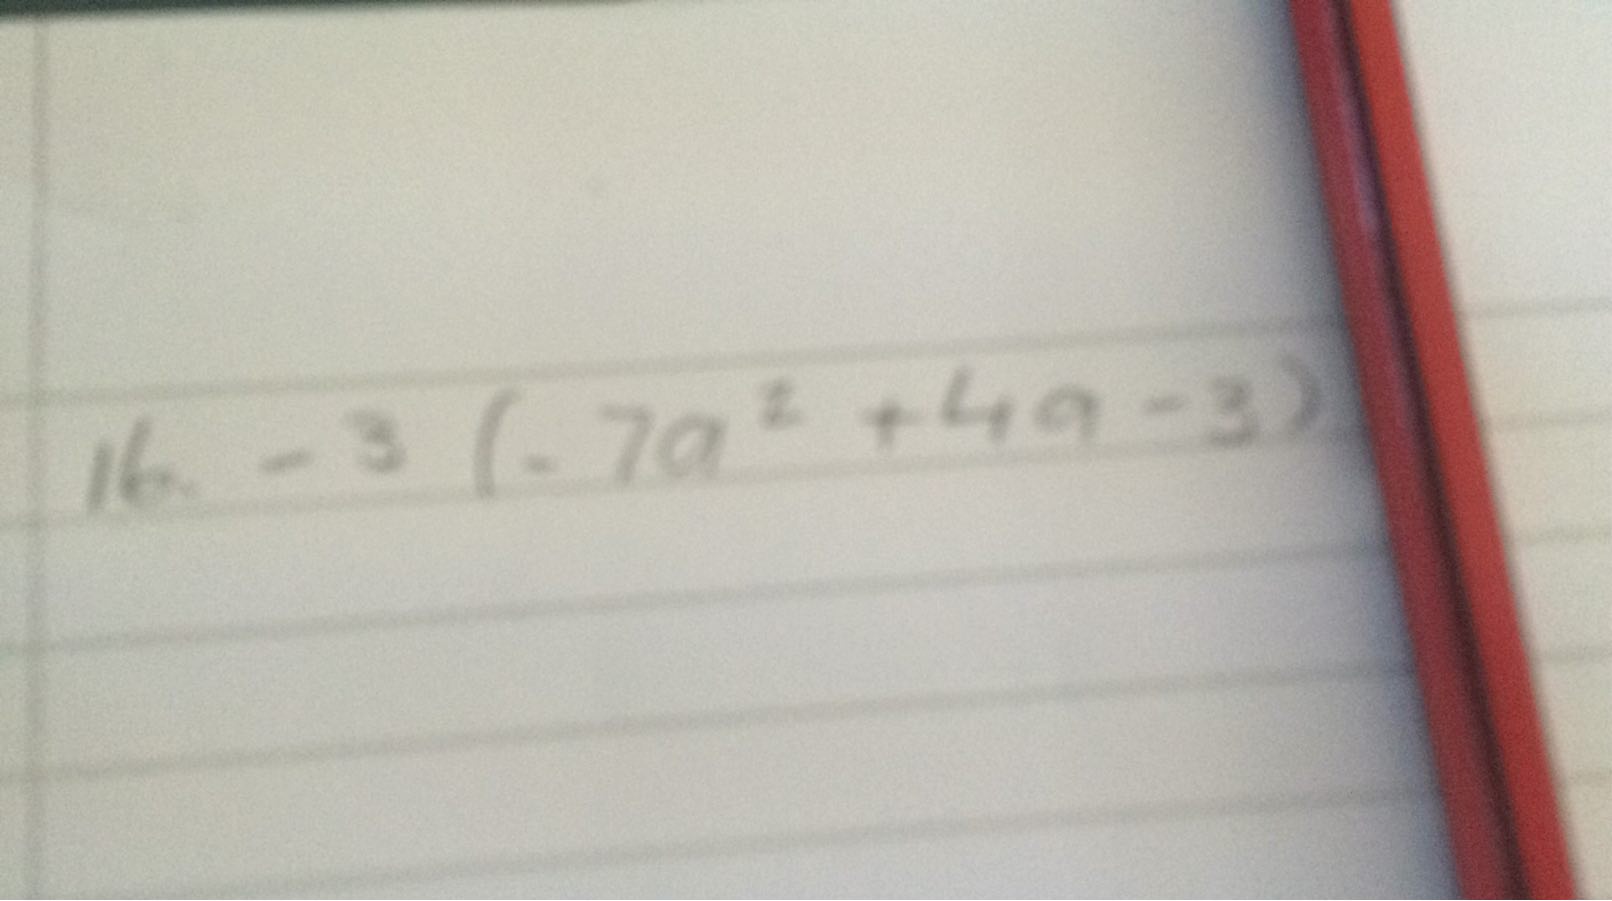 16. - 3 (- 7a² + 4a - 3)